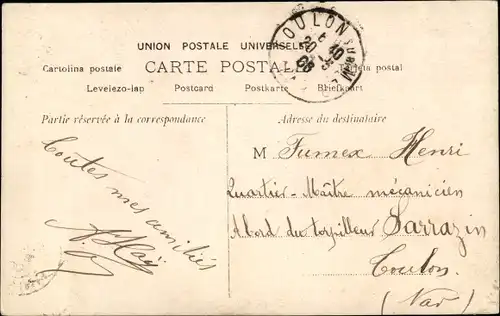 TOULON SUR MER
6 40
20
08
UNION POSTALE UNIVERSELLE
Cartolina postale CARTE POSTALE postal
Levelezo-lap Postcard Postkarte Briefkaart
Partie réservée à la correspondance
Adresse du destinataire
Toutes mes amitiés
M Fumex Henri
Quartier-Maître mécanicien
A bord du torpilleur Sarrazin
Toulon
(Var)